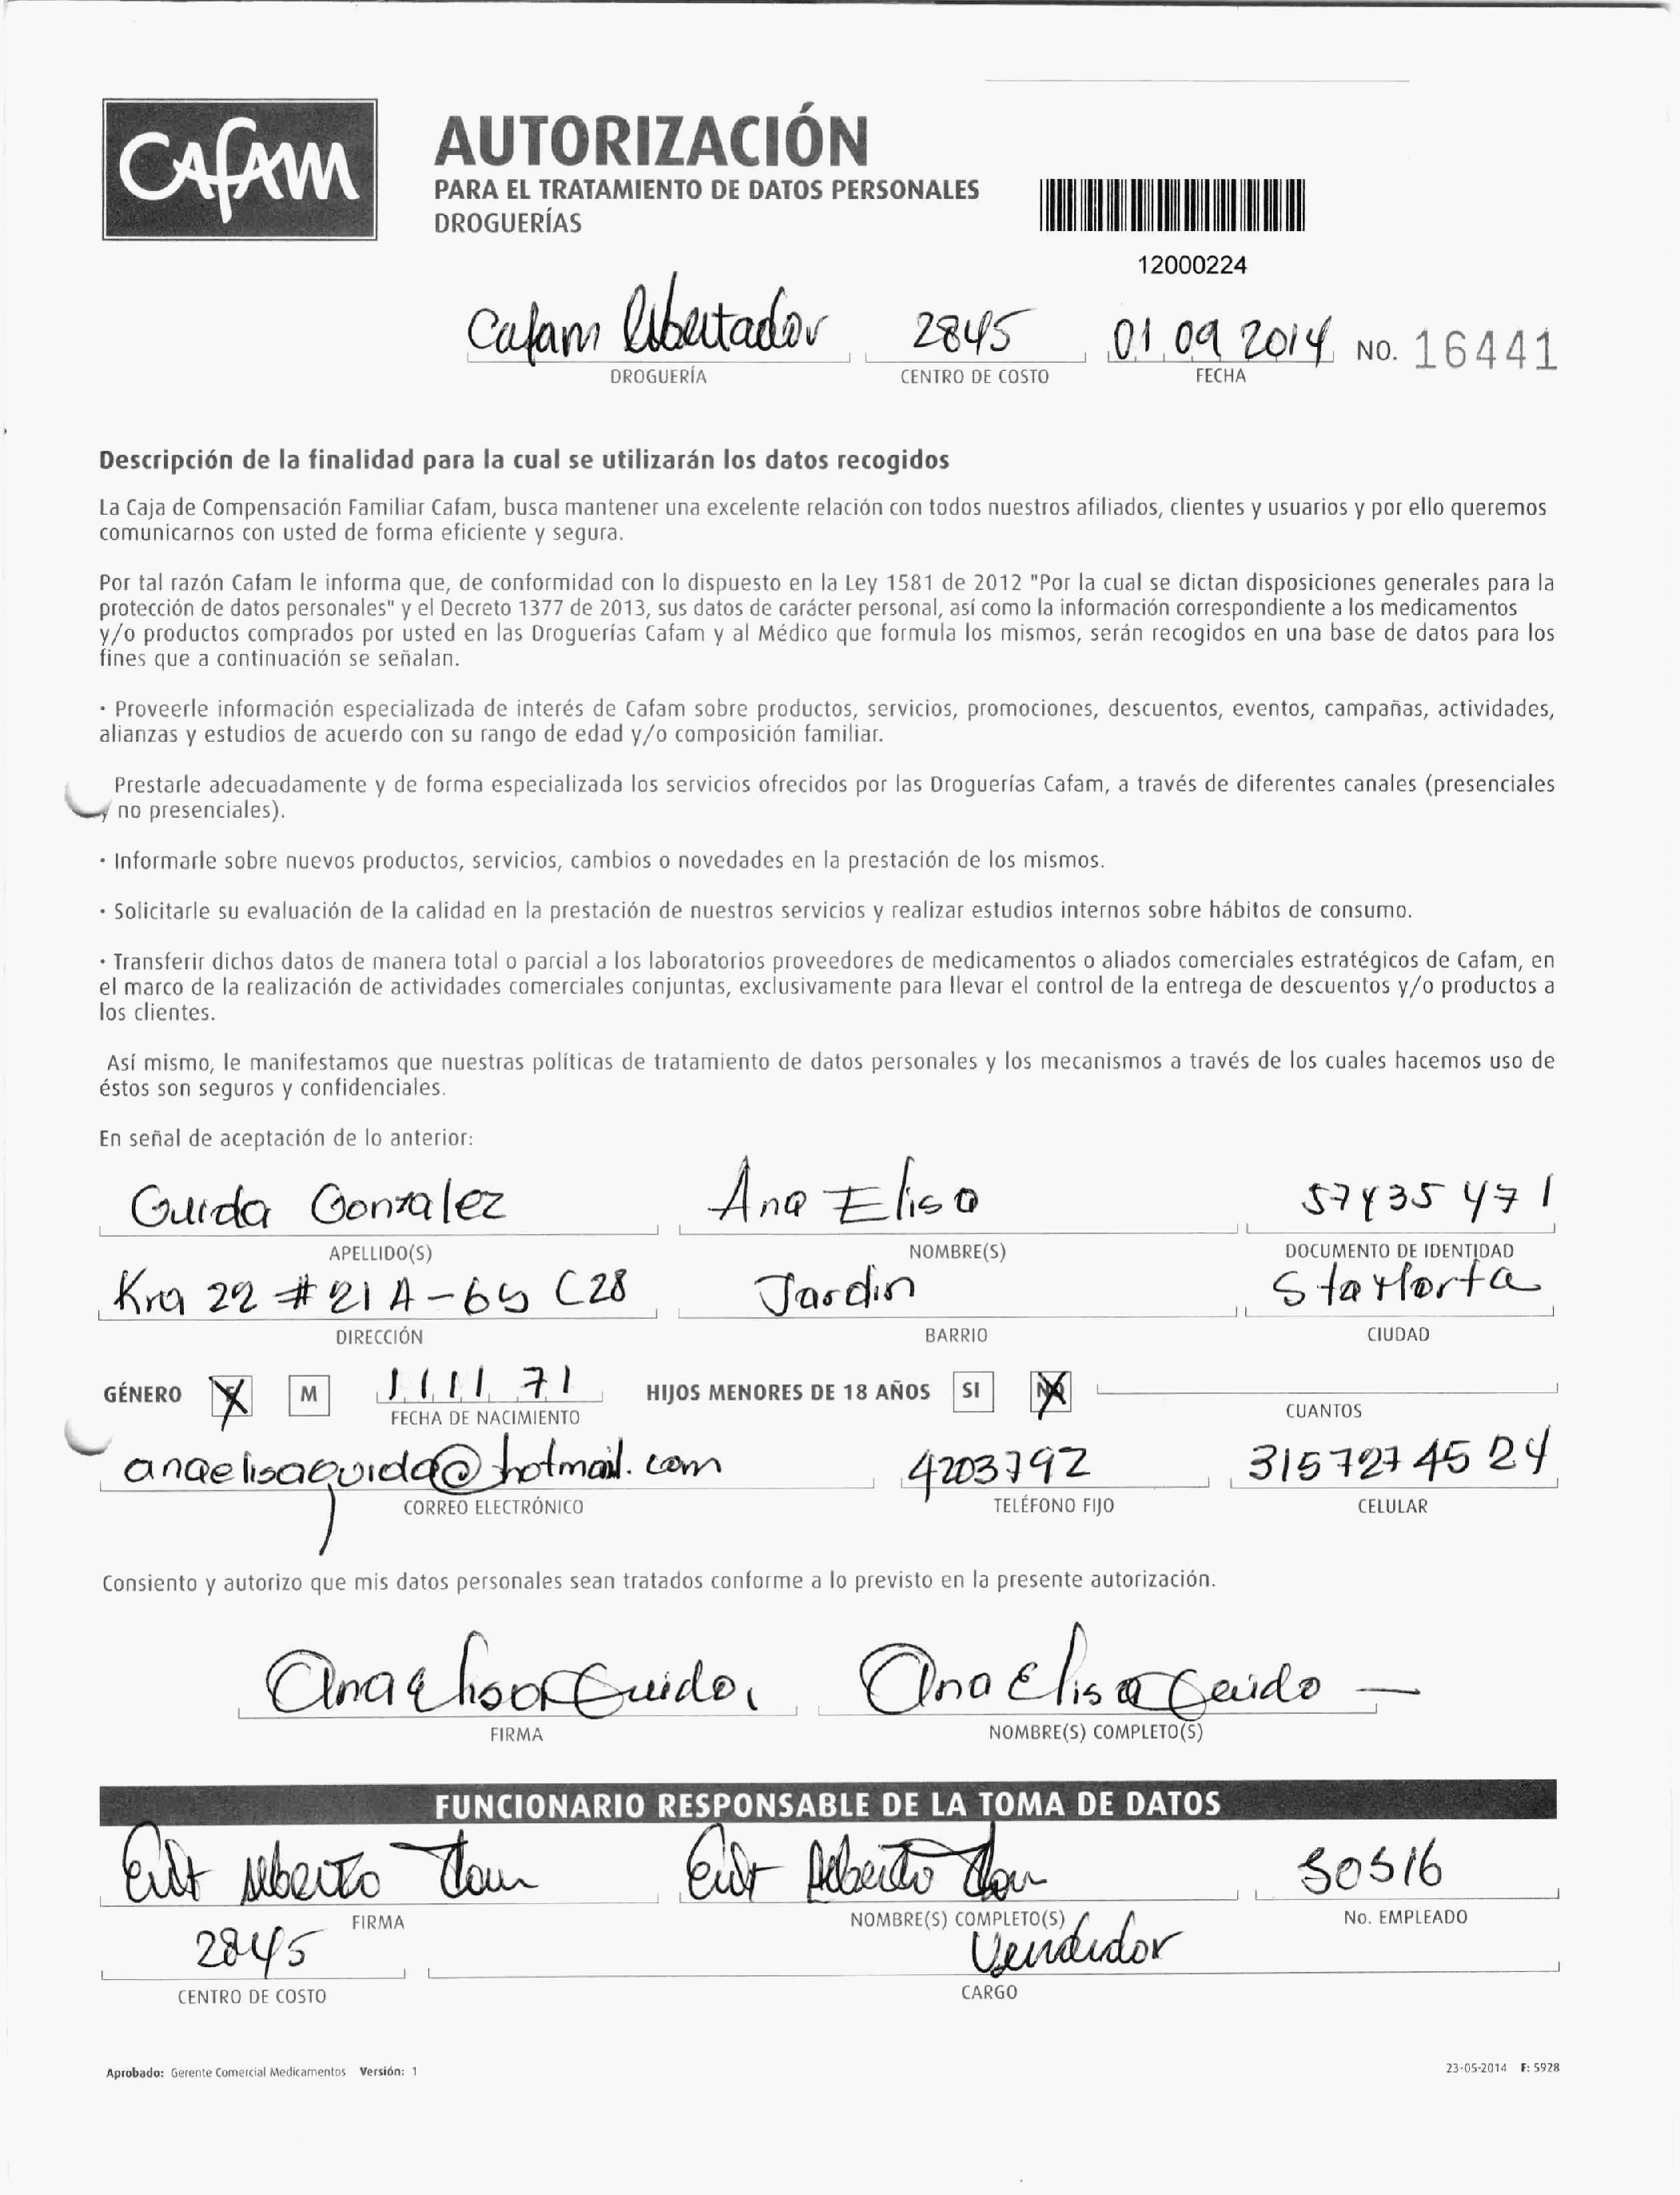 Cafam
AUTORIZACIÓN
PARA EL TRATAMIENTO DE DATOS PERSONALES
DROGUERÍAS
12000224
Cafam libertador 2845 01 09 2014 NO. 16441
DROGUERÍA CENTRO DE COSTO FECHA
Descripción de la finalidad para la cual se utilizarán los datos recogidos
La Caja de Compensación Familiar Cafam, busca mantener una excelente relación con todos nuestros afiliados, clientes y usuarios y por ello queremos
comunicarnos con usted de forma eficiente y segura.
Por tal razón Cafam le informa que, de conformidad con lo dispuesto en la Ley 1581 de 2012 "Por la cual se dictan disposiciones generales para la
protección de datos personales" y el Decreto 1377 de 2013, sus datos de carácter personal, así como la información correspondiente a los medicamentos
y/o productos comprados por usted en las Droguerías Cafam y al Médico que formula los mismos, serán recogidos en una base de datos para los
fines que a continuación se señalan.
· Proveerle información especializada de interés de Cafam sobre productos, servicios, promociones, descuentos, eventos, campañas, actividades,
alianzas y estudios de acuerdo con su rango de edad y/o composición familiar.
Prestarle adecuadamente y de forma especializada los servicios ofrecidos por las Droguerías Cafam, a través de diferentes canales (presenciales
y no presenciales).
· Informarle sobre nuevos productos, servicios, cambios o novedades en la prestación de los mismos.
· Solicitarle su evaluación de la calidad en la prestación de nuestros servicios y realizar estudios internos sobre hábitos de consumo.
· Transferir dichos datos de manera total o parcial a los laboratorios proveedores de medicamentos o aliados comerciales estratégicos de Cafam, en
el marco de la realización de actividades comerciales conjuntas, exclusivamente para llevar el control de la entrega de descuentos y/o productos a
los clientes.
Así mismo, le manifestamos que nuestras políticas de tratamiento de datos personales y los mecanismos a través de los cuales hacemos uso de
éstos son seguros y confidenciales.
En señal de aceptación de lo anterior:
Guida Gonzalez Ana Elisa 57435471
APELLIDO(S) NOMBRE(S) DOCUMENTO DE IDENTIDAD
Kra 22 # 21 A - 65 C28 Jardin Sta Marta
DIRECCIÓN BARRIO CIUDAD
GÉNERO F M 11 11 71 HIJOS MENORES DE 18 AÑOS SI NO
FECHA DE NACIMIENTO CUANTOS
anaelisaguida@hotmail.com 4203792 3157274524
CORREO ELECTRÓNICO TELÉFONO FIJO CELULAR
Consiento y autorizo que mis datos personales sean tratados conforme a lo previsto en la presente autorización.
Ana elisa Guida Ana Elisa Guida
FIRMA NOMBRE(S) COMPLETO(S)
FUNCIONARIO RESPONSABLE DE LA TOMA DE DATOS
Alberto Alberto 50516
FIRMA NOMBRE(S) COMPLETO(S) No. EMPLEADO
2845 Vendedor
CENTRO DE COSTO CARGO
Aprobado: Gerente Comercial Medicamentos Versión: 1 23-05-2014 F: 5928